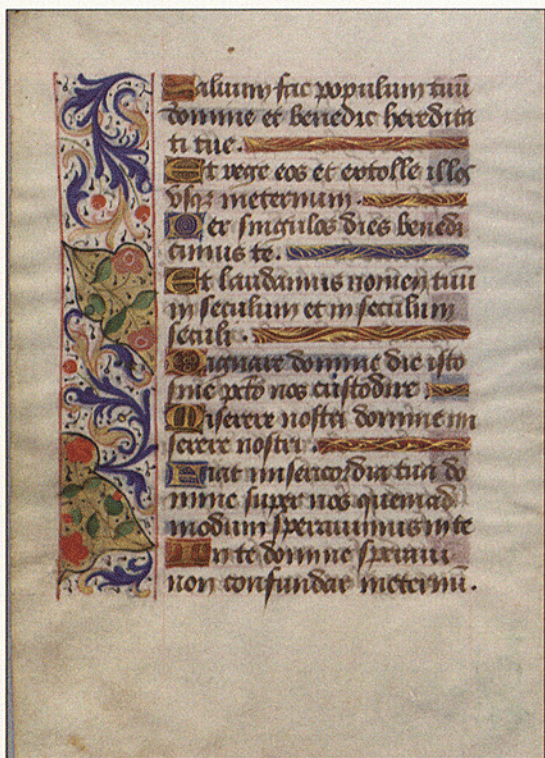 Saluum fac populum tuū
domine et benedic heredita
ti tue.
Et rege eos et extolle illos
vsqȝ ineternum.
Per singulos dies benedi
cimus te.
Et laudamus nomen tuū
in seculum et in seculum
seculi.
Dignare domine die isto
sine pctō nos custodire.
Miserere nostri domine mi
serere nostri.
Fiat misericordia tua do
mine super nos quemad
modum sperauimus in te
In te domine speraui
non confundar ineternū.